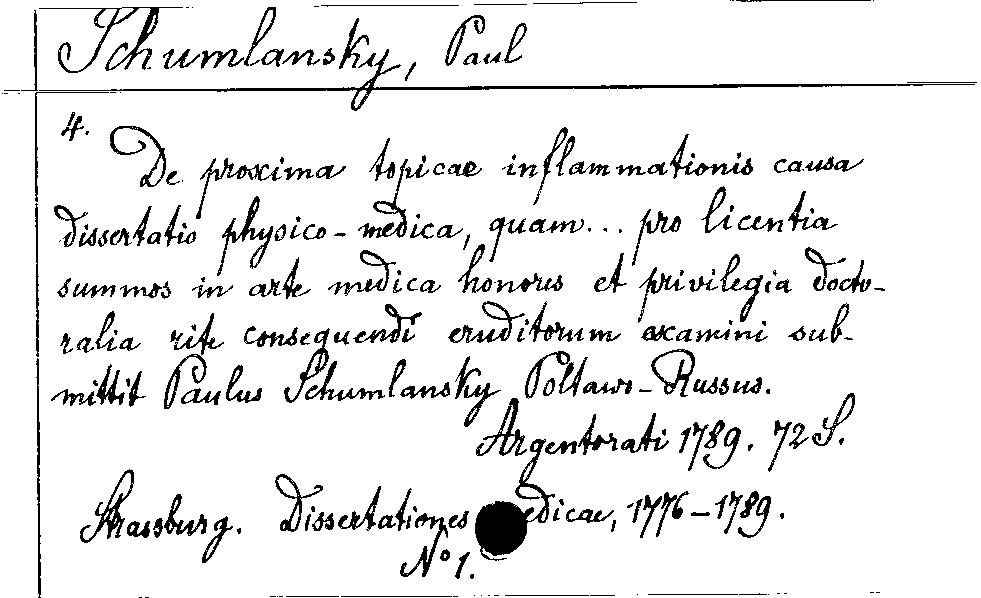 Schumlansky, Paul
4.
De proxima topicae inflammationis causa
dissertatio physico-medica, quam... pro licentia
summos in arte medica honores et privilegia docto-
ralia rite consequendi eruditorum examini sub-
mittit Paulus Schumlansky Poltawo-Russus.
Argentorati 1789. 72 S.
Strassburg. Dissertationes edicae, 1776-1789.
No 1.